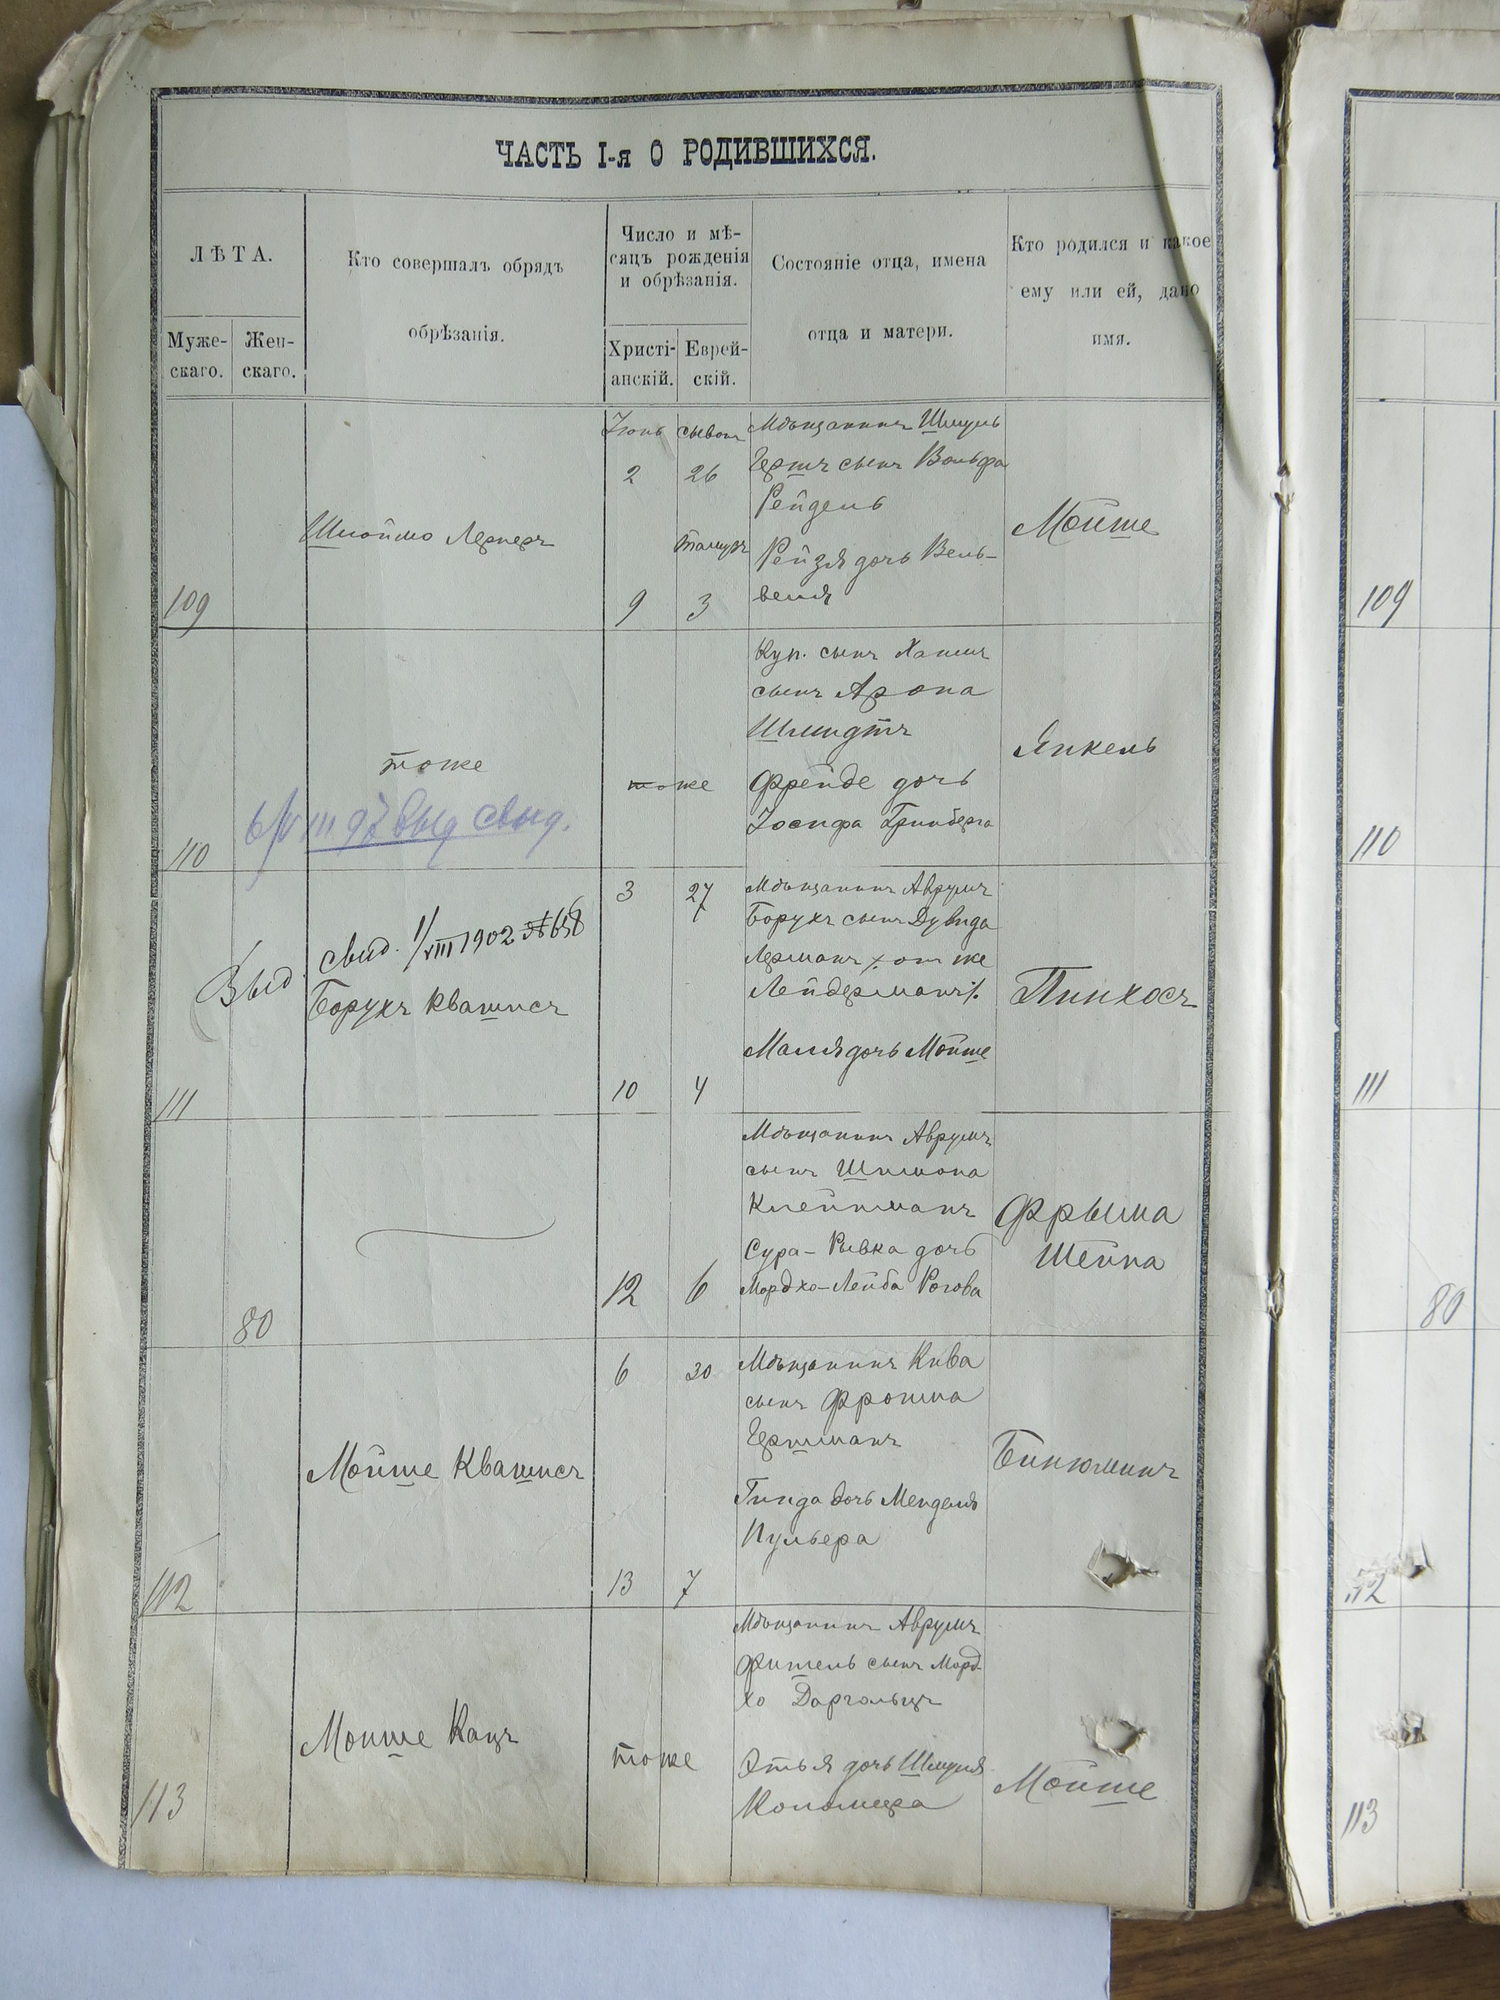 ЧАСТЬ I-я О РОДИВШИХСЯ.
ЛѢТА.
Муже-
скаго.
Жен-
скаго.
Кто совершалъ обрядъ
обрѣзанія.
Число и мѣ-
сяцъ рожденія
и обрѣзанія.
Христі-
анскій.
Еврей-
скій.
Состояніе отца, имена
отца и матери.
Кто родился и какое
ему или ей, дано
имя.
109
Шлоймо Лернеръ
Іюнь
2
9
сыванъ
26
тамузъ
3
Мѣщанинъ Шмуль
Гершъ сынъ Вольфа
Рейдель
Рейзя дочь Вель-
веля
Мойше
110
тоже
тоже
Куп. сынъ Хаимъ
сынъ Арона
Шмидтъ
Фрейде дочь
Іосифа Гринберга
Янкель
выд свид.
111
Выд
свид. 1/VIII 1902 № 658
Борухъ Квашисъ
3
10
27
4
Мѣщанинъ Аврумъ
Борухъ сынъ Дувида
Лерманъ /: онъ же
Лейдерманъ :/.
Маля дочь Мойше
Пинхосъ
80
12
6
Мѣщанинъ Аврумъ
сынъ Шимона
Клейнманъ
Сура-Рывка дочь
Мордхо-Лейба Рогова
Фрыма
Шейна
112
Мойше Квашисъ
6
13
30
7
Мѣщанинъ Кива
сынъ Фроима
Гершманъ
Гинда дочь Менделя
Пульвера
Бинюминъ
113
Мойше Кацъ
тоже
Мѣщанинъ Аврумъ
Фишель сынъ Морд-
хо Даргольцъ
Этья дочь Шмуля
Коломера
Мойше
109
110
111
80
112
113